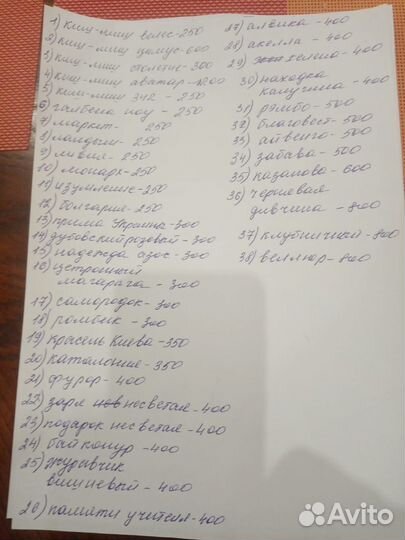 1) киш-миш велес-250
2) киш-миш цимус-600
3) киш-миш столетие-300
4) киш-миш аватар-1200
5) киш-миш 342 - 250
6) галбена ноу - 250
7) маркет- 250
8) ландыш - 250
9) ливия - 250
10) монарх - 250
11) изумление-250
12) болгария-250
13) прима Украина-300
14) дубовский розовый - 300
15) надежда азос - 300
16) цетронный
магарача - 300
17) самородок - 300
18) ромбик - 300
19) красень Киева - 350
20) каталония - 350
21) фурор - 400
22) заря несветая - 400
23) подарок несветая - 400
24) байконур - 400
25) журавчик
вишневый - 400
26) памяти учителя-400
27) алвика - 400
28) акелла - 400
29) хелено - 400
30) находка
калугина - 400
31) рэмбо - 500
32) благовест - 500
33) айвенго - 500
34) забава - 500
35) казанова - 600
36) чернявая
дивчина - 800
37) клубничный - 800
38) веллюр - 800
Avito